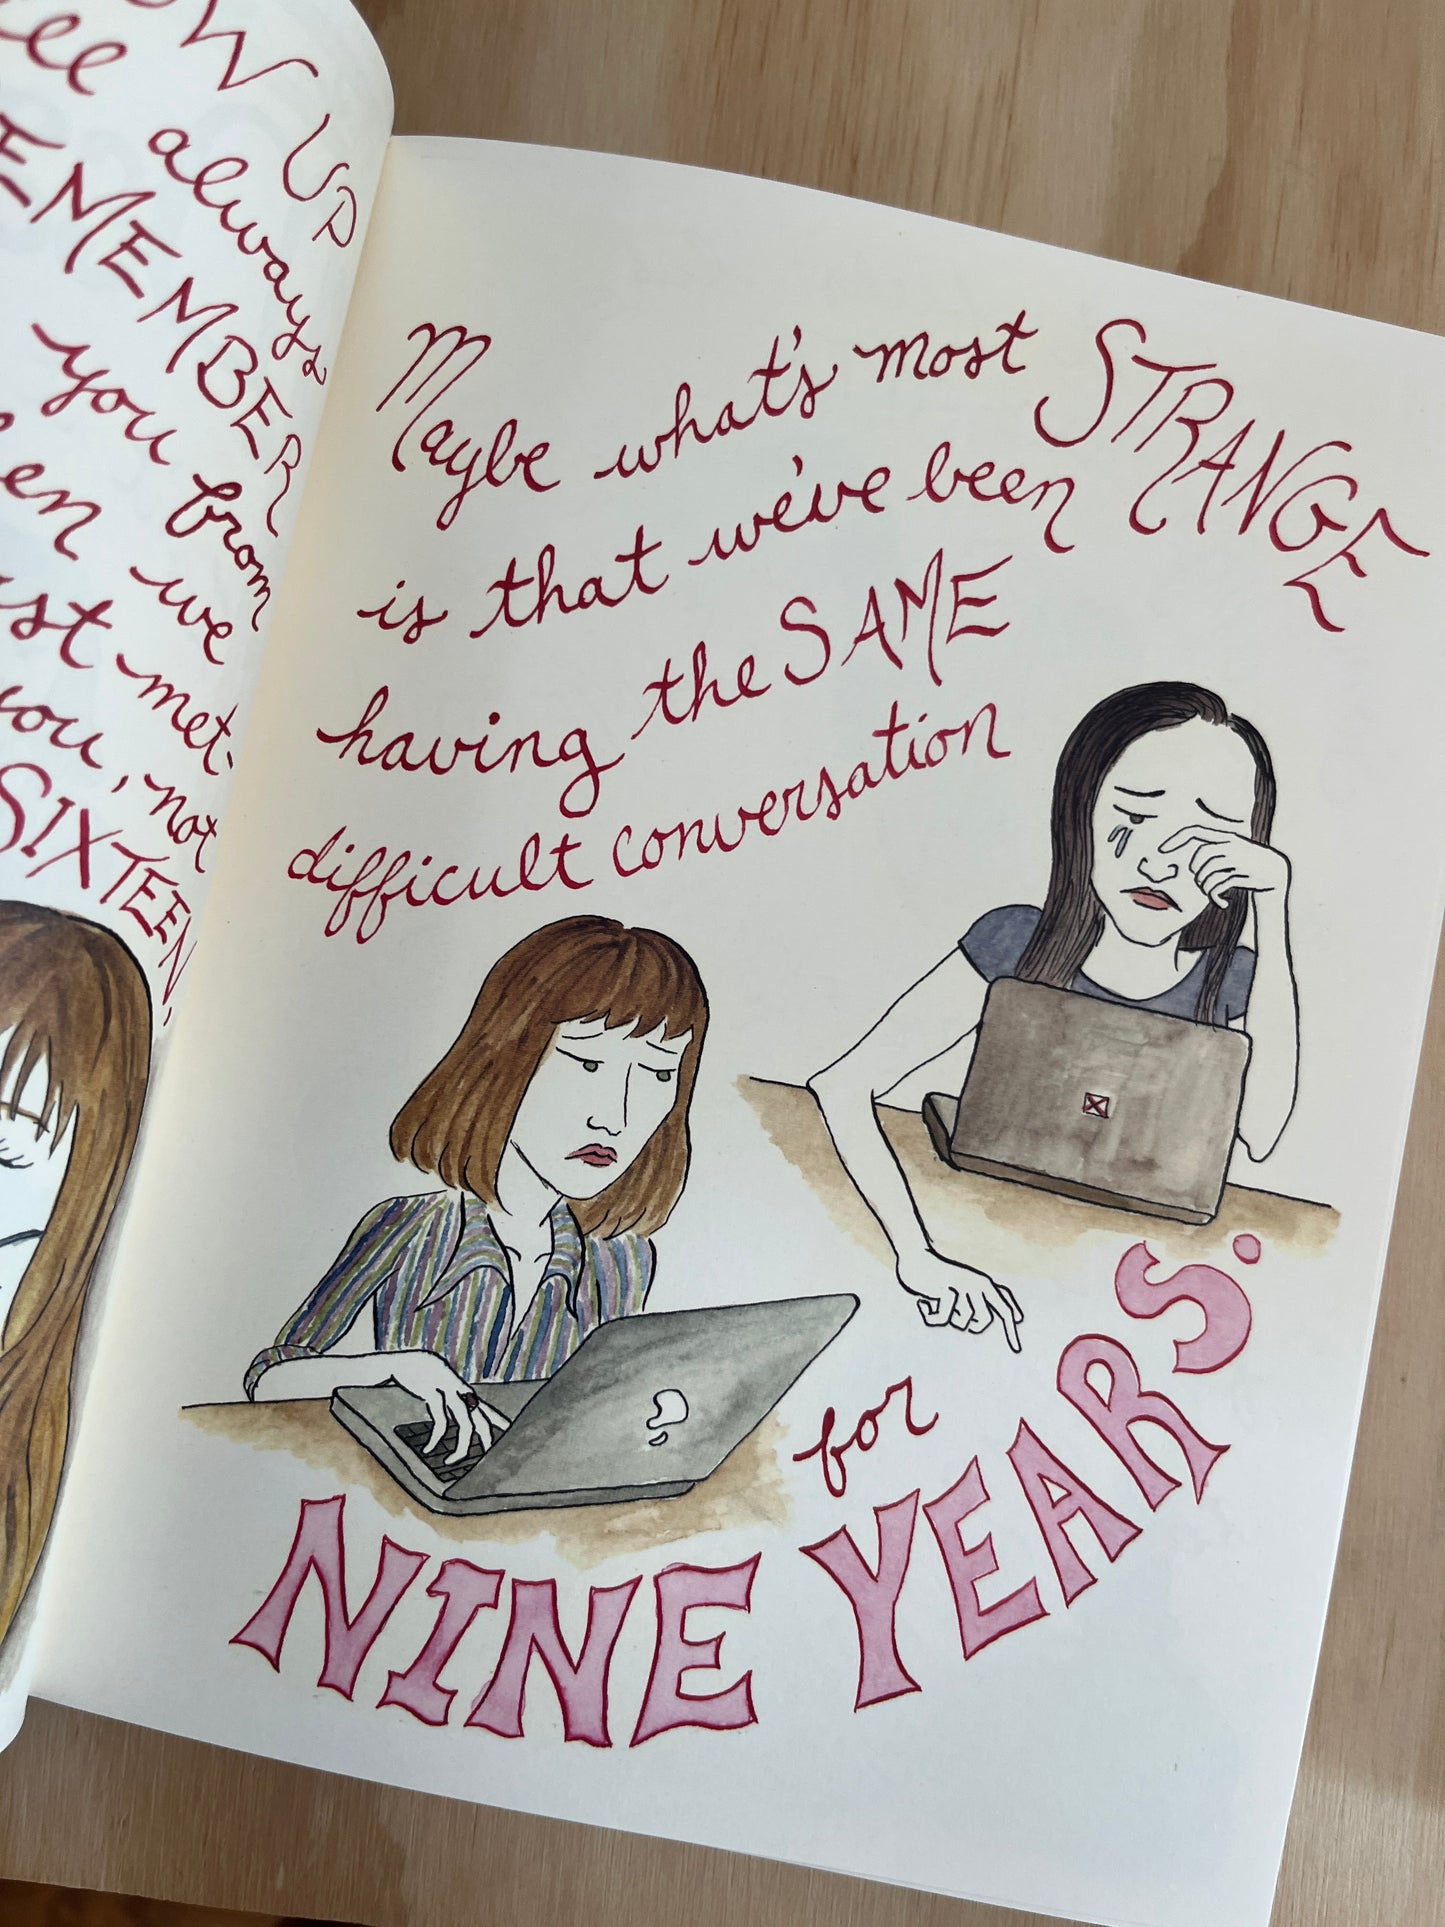 OW UP
always
EMEMBER
you from
en we
ust met.
you, not
SIXTEEN,
Maybe what's most STRANGE
is that we've been
having the SAME
difficult conversation
for
NINE YEARS.